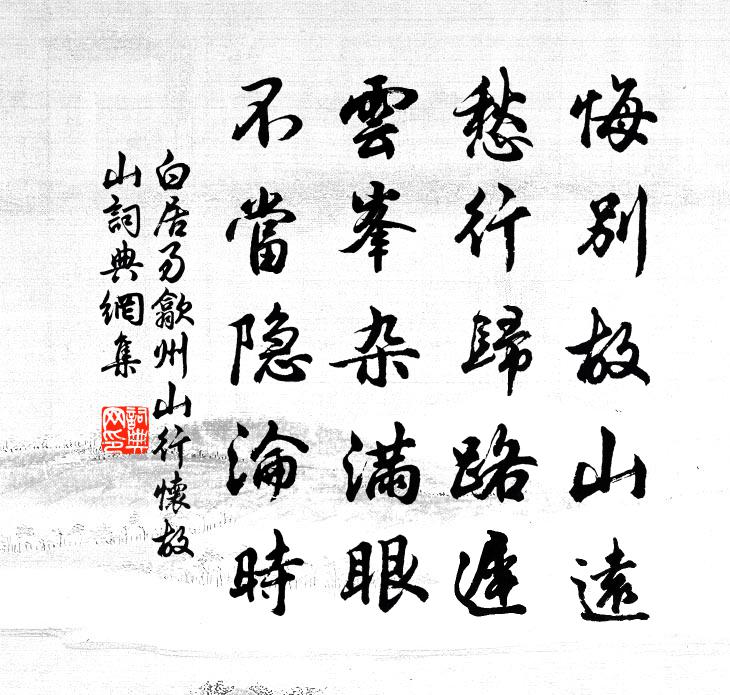 悔別故山遠
愁行歸路遲
雲峯杂满眼
不當隐淪時
白居易歙州山行懷故
山詞典網集
詞典网印